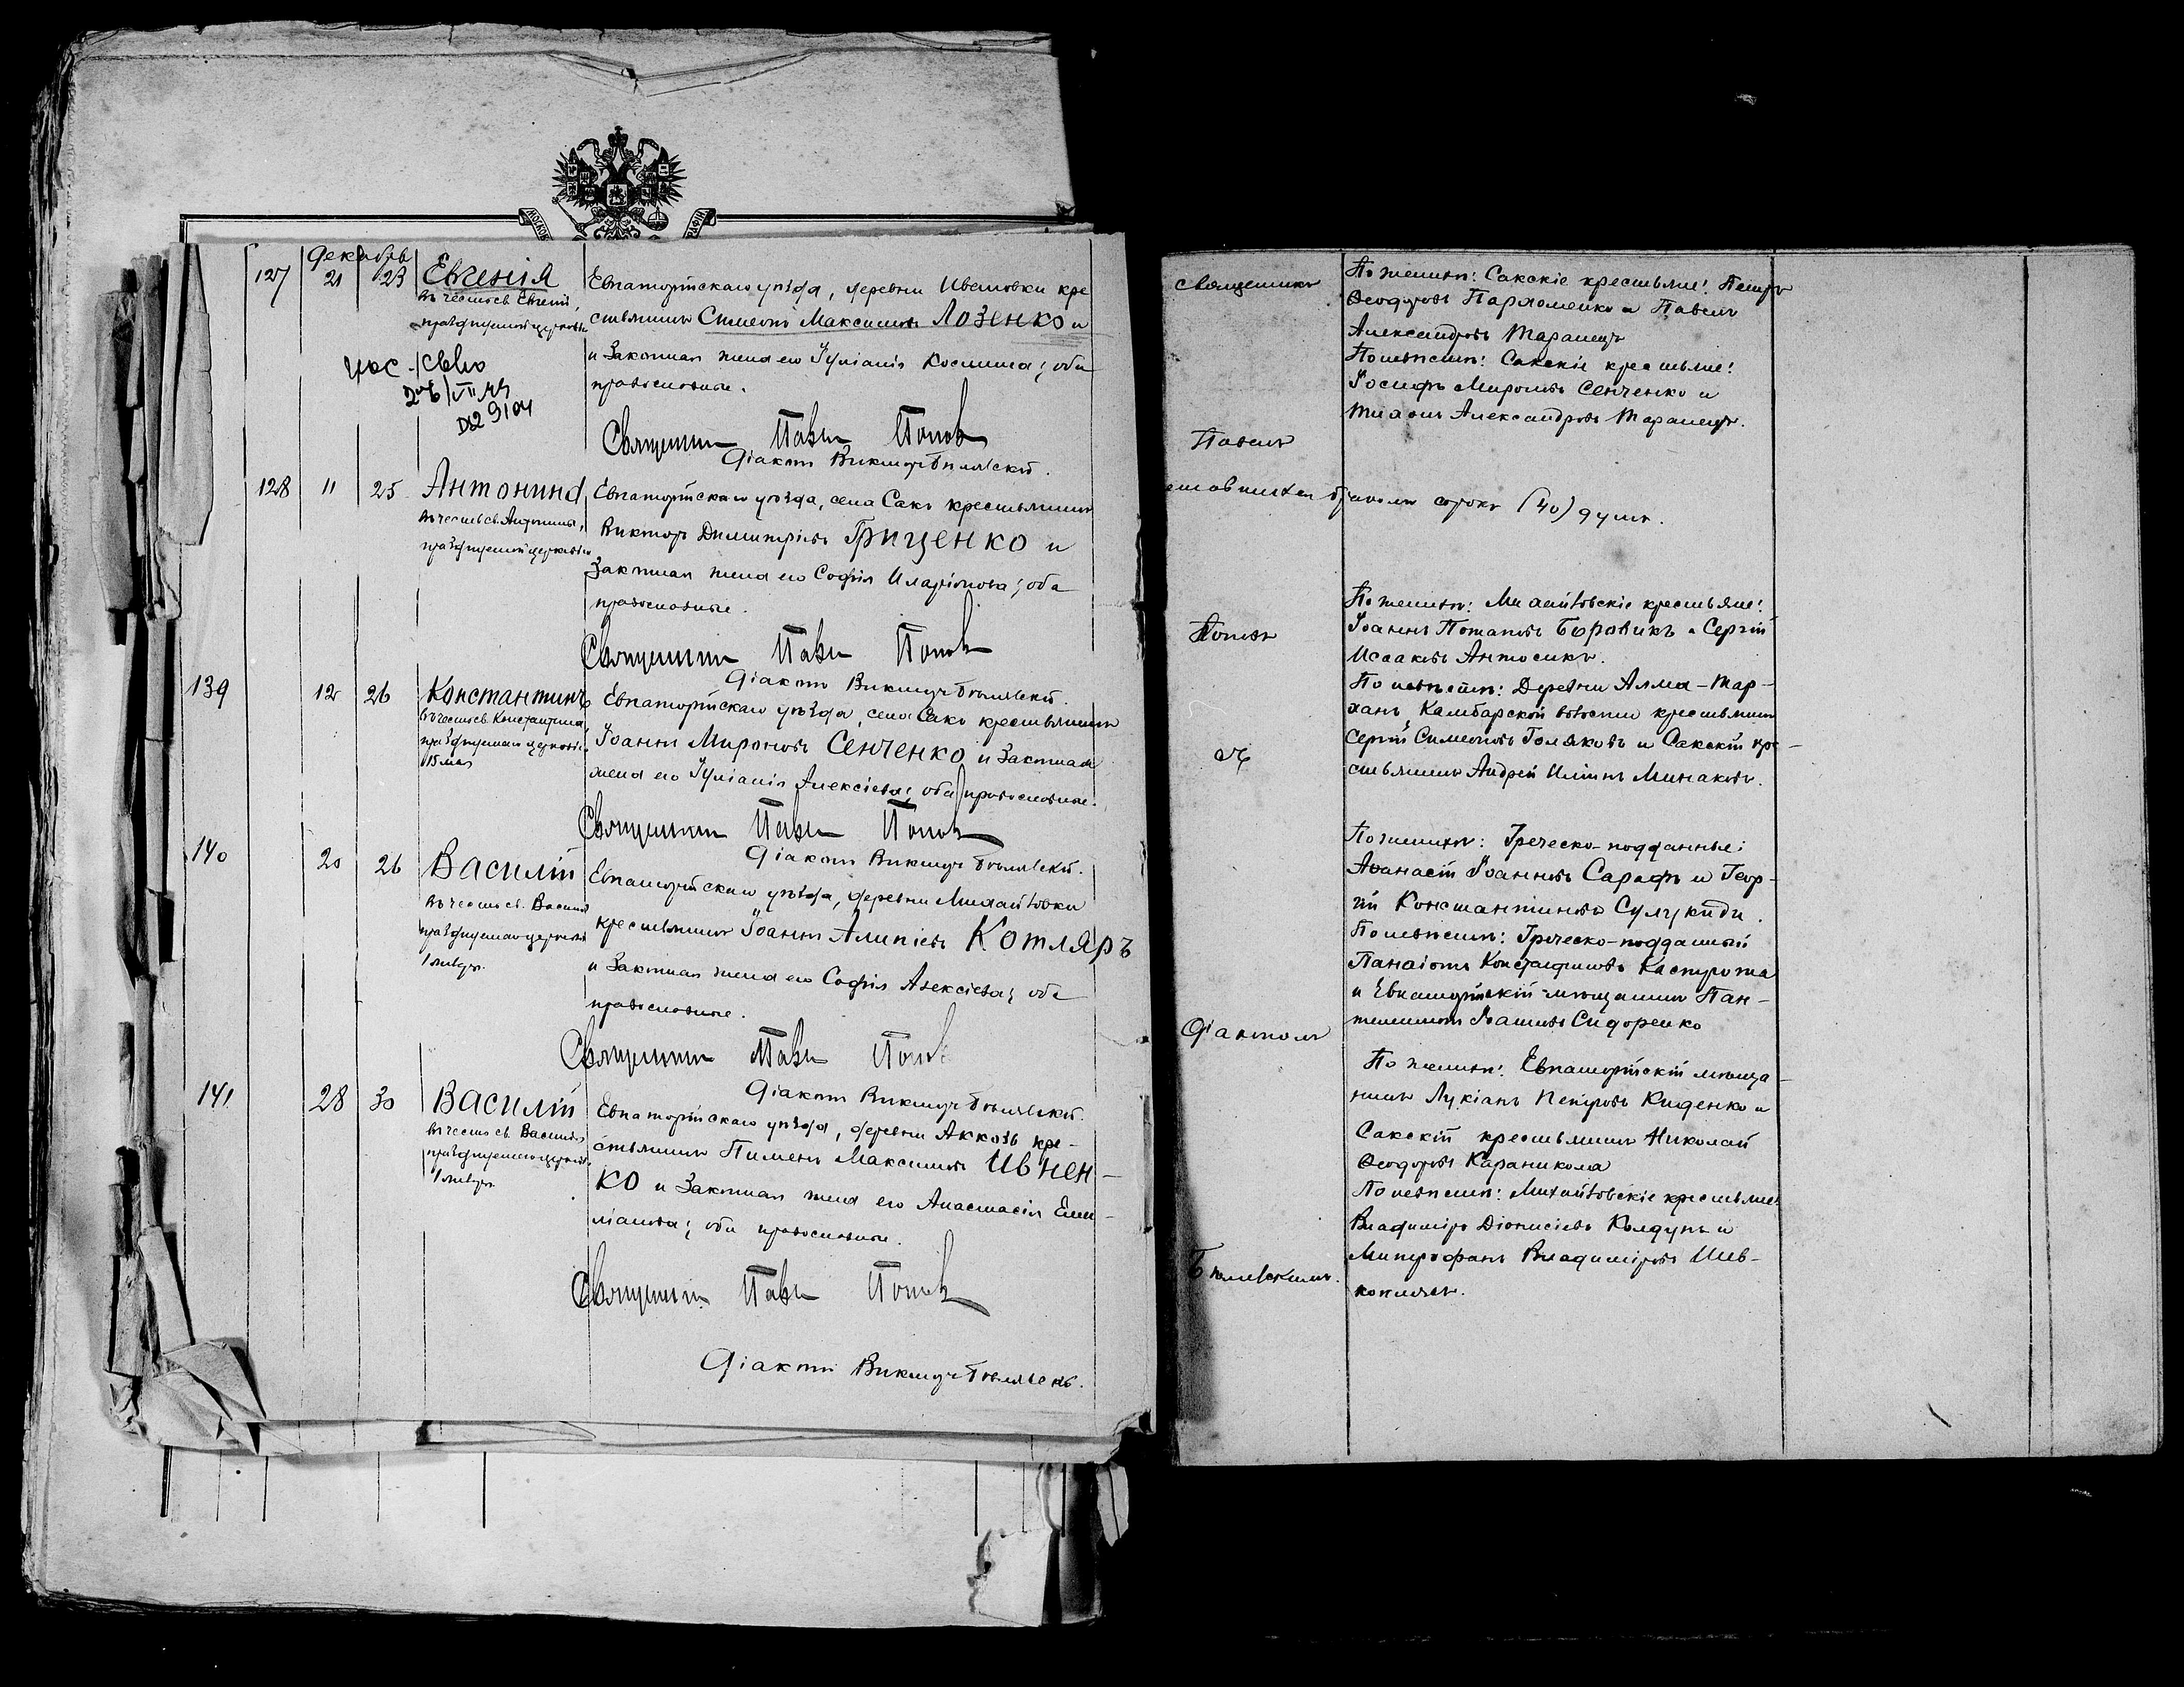 МОСКОВ
РАФІИ
Декабрь
127 21 23 Евгенія
въ честь св. Евгеніи,
празднуемой церковью
Евпаторійскаго уѣзда, деревни Ивановки кре
стьянинъ Симеонъ Максимовъ Лозенко и
и законная жена его Іуліанія Космина; оба
православные.
VII
9104
Священникъ Павелъ Поповъ
Діаконъ Викторъ Бѣлявскій.
128 11 25 Антонина
въ честь св. Антонины,
празднуемой церковью
Евпаторійскаго уѣзда, села Саки крестьянинъ
Викторъ Димитріевъ Гриценко и
законная жена его Софія Иларіонова; оба
православные.
Священникъ Павелъ Поповъ
Діаконъ Викторъ Бѣлявскій.
139 12 26 Константинъ
въ честь св. Константина,
празднуемаго церковью
Евпаторійскаго уѣзда, села Саки крестьянинъ
Іоаннъ Мироновъ Сенченко и законная
жена его Іуліанія Алексіева; оба православные.
Священникъ Павелъ Поповъ
Діаконъ Викторъ Бѣлявскій.
140 20 26 Василій
въ честь св. Василія
празднуемаго церковью
1 января.
Евпаторійскаго уѣзда, деревни Михайловки
крестьянинъ Іоаннъ Алипіевъ Котляръ
и законная жена его Софія Алексіева; оба
православные.
Священникъ Павелъ Поповъ
Діаконъ Викторъ Бѣлявскій.
141 28 30 Василій
въ честь св. Василія
празднуемаго церковью
1 января
Евпаторійскаго уѣзда, деревни Аккозъ кре-
стьянинъ Пименъ Максимовъ Ивнен-
ко и законная жена его Анастасія Еми-
ліанова; оба православные.
Священникъ Павелъ Поповъ
Діаконъ Викторъ Бѣлявскій.
священникъ
Павелъ
Поповъ
съ
Діакономъ
Бѣлявскимъ.
Сакскіе крестьяне: Петръ
Ѳеодоровъ Пархоменко и Павелъ
Александровъ Таранецъ
Сакскіе крестьяне:
Іосифъ Мироновъ Сенченко и
Тихонъ Александровъ Таранецъ.
сорокъ (40) душъ.
Михайловскіе крестьяне:
Іоаннъ Потаповъ Боровикъ и Сергій
Исааковъ Антосикъ.
Деревни Алма-Тар-
ханъ, Калбарской волости крестьянинъ
Сергій Симеоновъ Голяковъ и Сакскій кре-
стьянинъ Андрей Иліинъ Минаковъ.
Греческо-подданные:
Аѳанасій Іоанновъ Сарафъ и Геор-
гій Константиновъ Сулукиди.
Греческо-подданный
Панаіотъ Константиновъ Кастрота
и Евпаторійскій мѣщанинъ Пан-
телеимонъ Іоанновъ Сидоренко
Евпаторійскій мѣща-
нинъ Лукіанъ Петровъ Киденко и
Сакскій крестьянинъ Николай
Ѳеодоровъ Караникола
Михайловскіе крестьяне:
Владиміръ Діонисіевъ Колдунъ и
Митрофанъ Владиміровъ Шев-